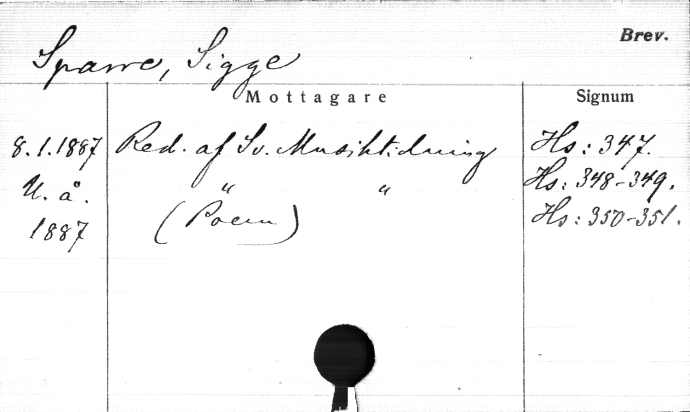 Brev.
Sparre, Sigge
Mottagare Signum
8.1.1887 Red. af Sv. Musiktidning Hs: 347.
U. å. " " Hs: 348-349.
1887 (Poem) Hs: 350-351.